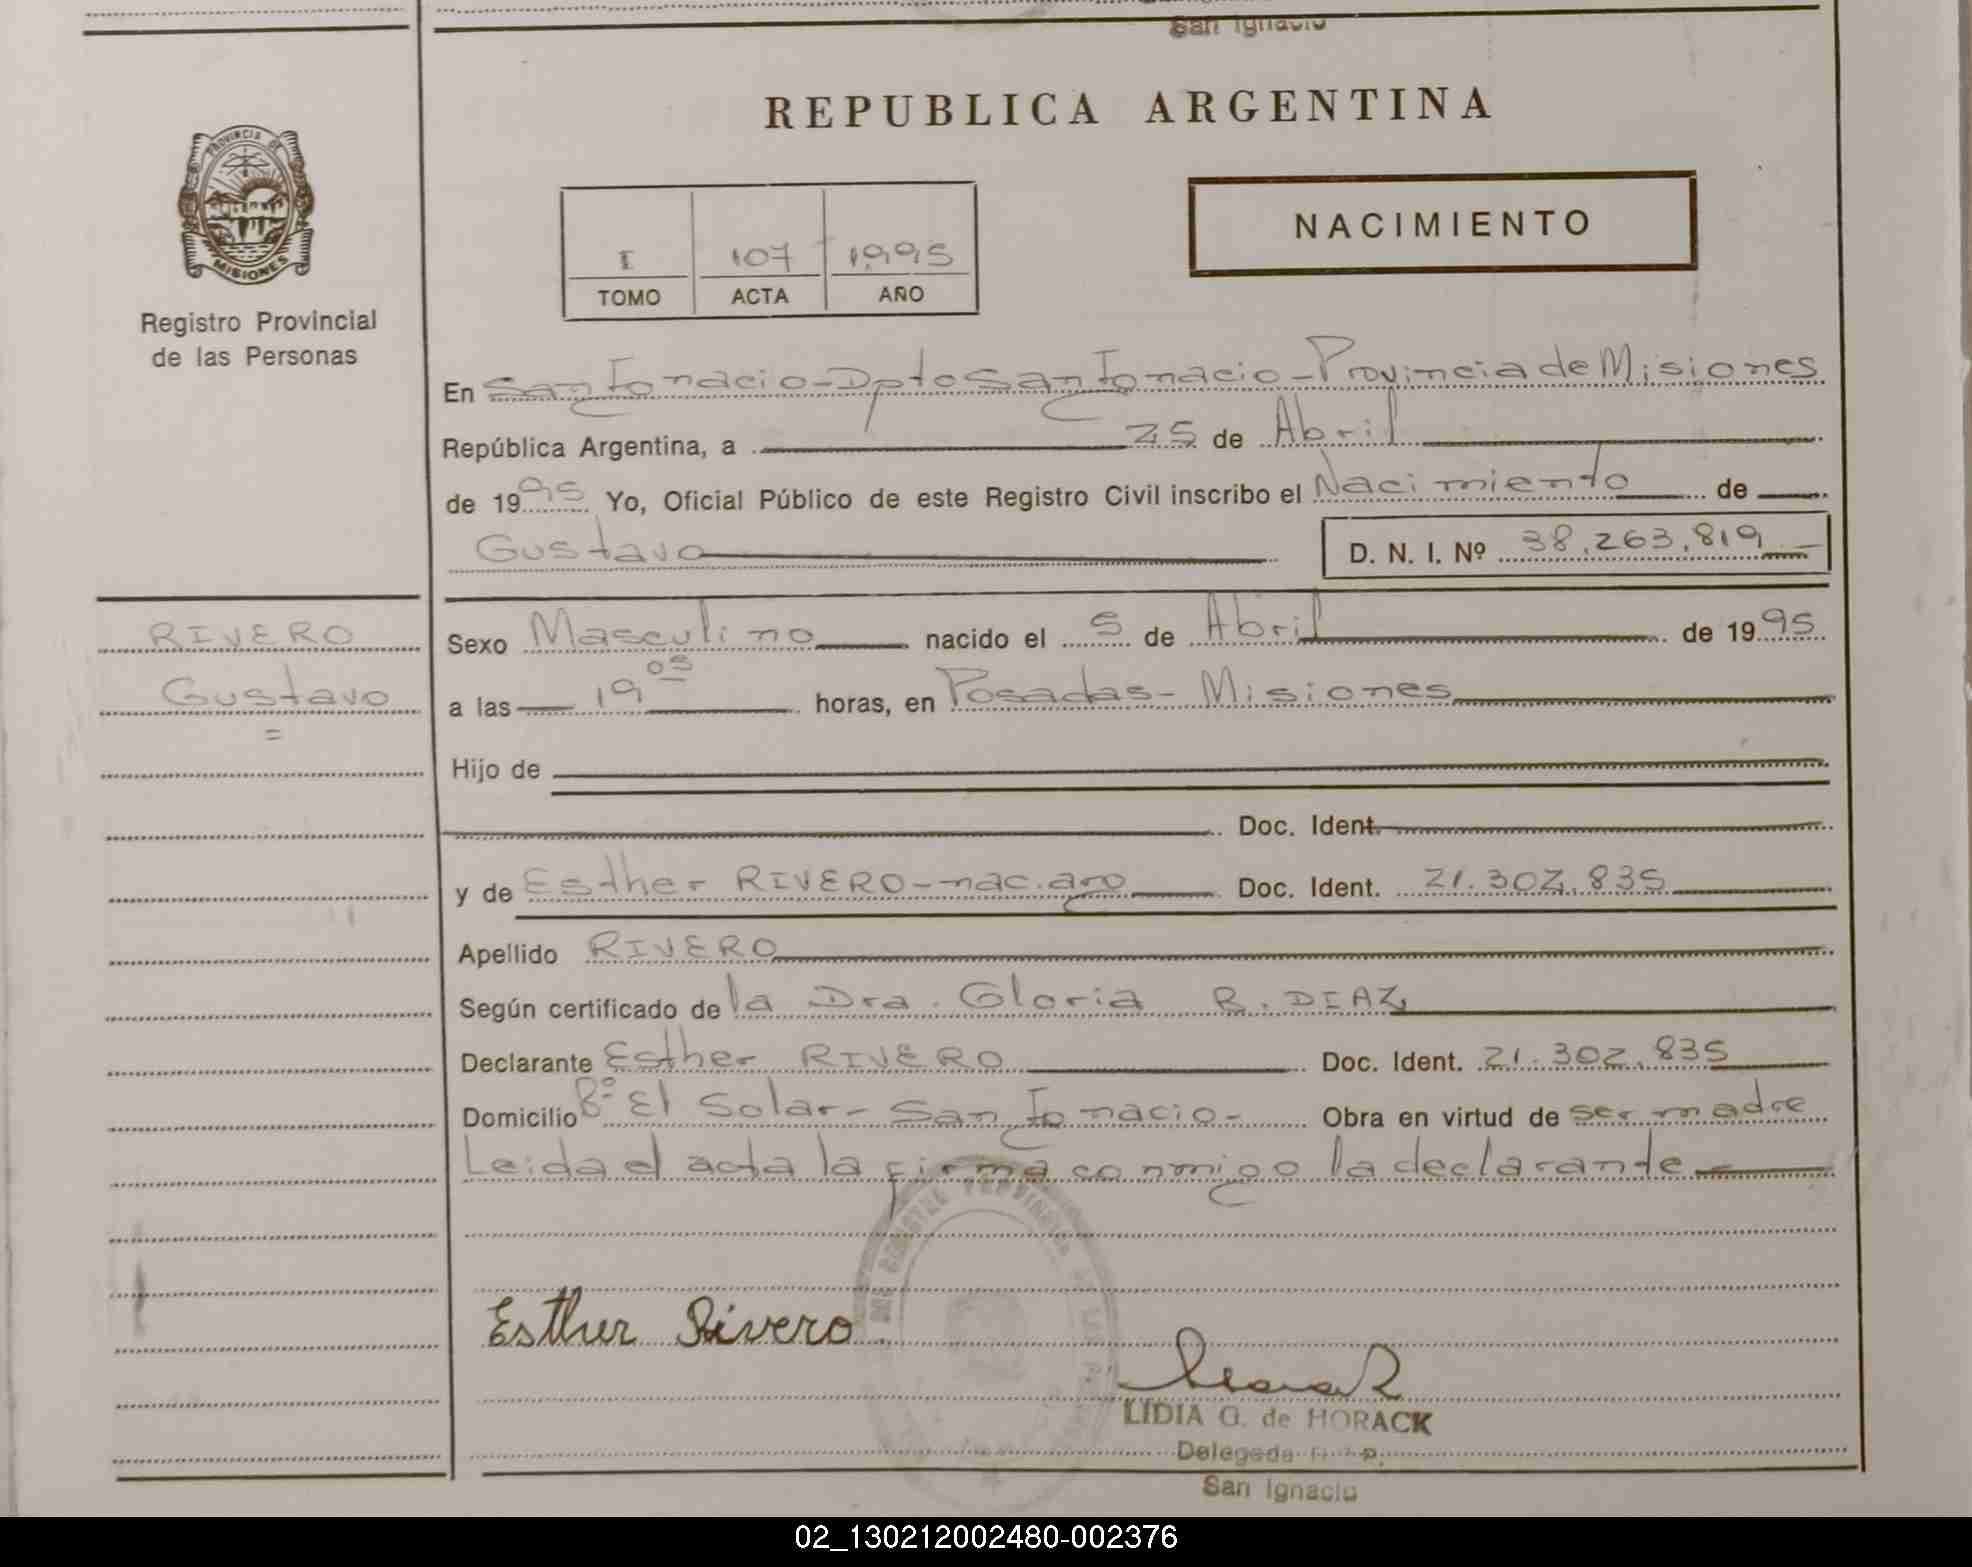 San Ignacio
REPUBLICA ARGENTINA
PROVINCIA DE
MISIONES
Registro Provincial
de las Personas
I 107 1995
TOMO ACTA AÑO
NACIMIENTO
En San Ignacio - Dpto San Ignacio - Provincia de Misiones
República Argentina, a 25 de Abril
de 1995 Yo, Oficial Público de este Registro Civil inscribo el Nacimiento de
Gustavo D. N. I. Nº 38.263.819
RIVERO
Gustavo
=
Sexo Masculino nacido el 5 de Abril de 1995
a las 19 05 horas, en Posadas - Misiones
Hijo de
Doc. Ident.
y de Esther RIVERO - nac. arg Doc. Ident. 21.302.835
Apellido RIVERO
Según certificado de la Dra. Gloria R. DIAZ
Declarante Esther RIVERO Doc. Ident. 21.302.835
Domicilio Bº El Solar - San Ignacio - Obra en virtud de ser madre
Leida el acta la firma conmigo la declarante
Esther Rivero
LIDIA G. de HORACK
Delegada R. P.
San Ignacio
02_130212002480-002376